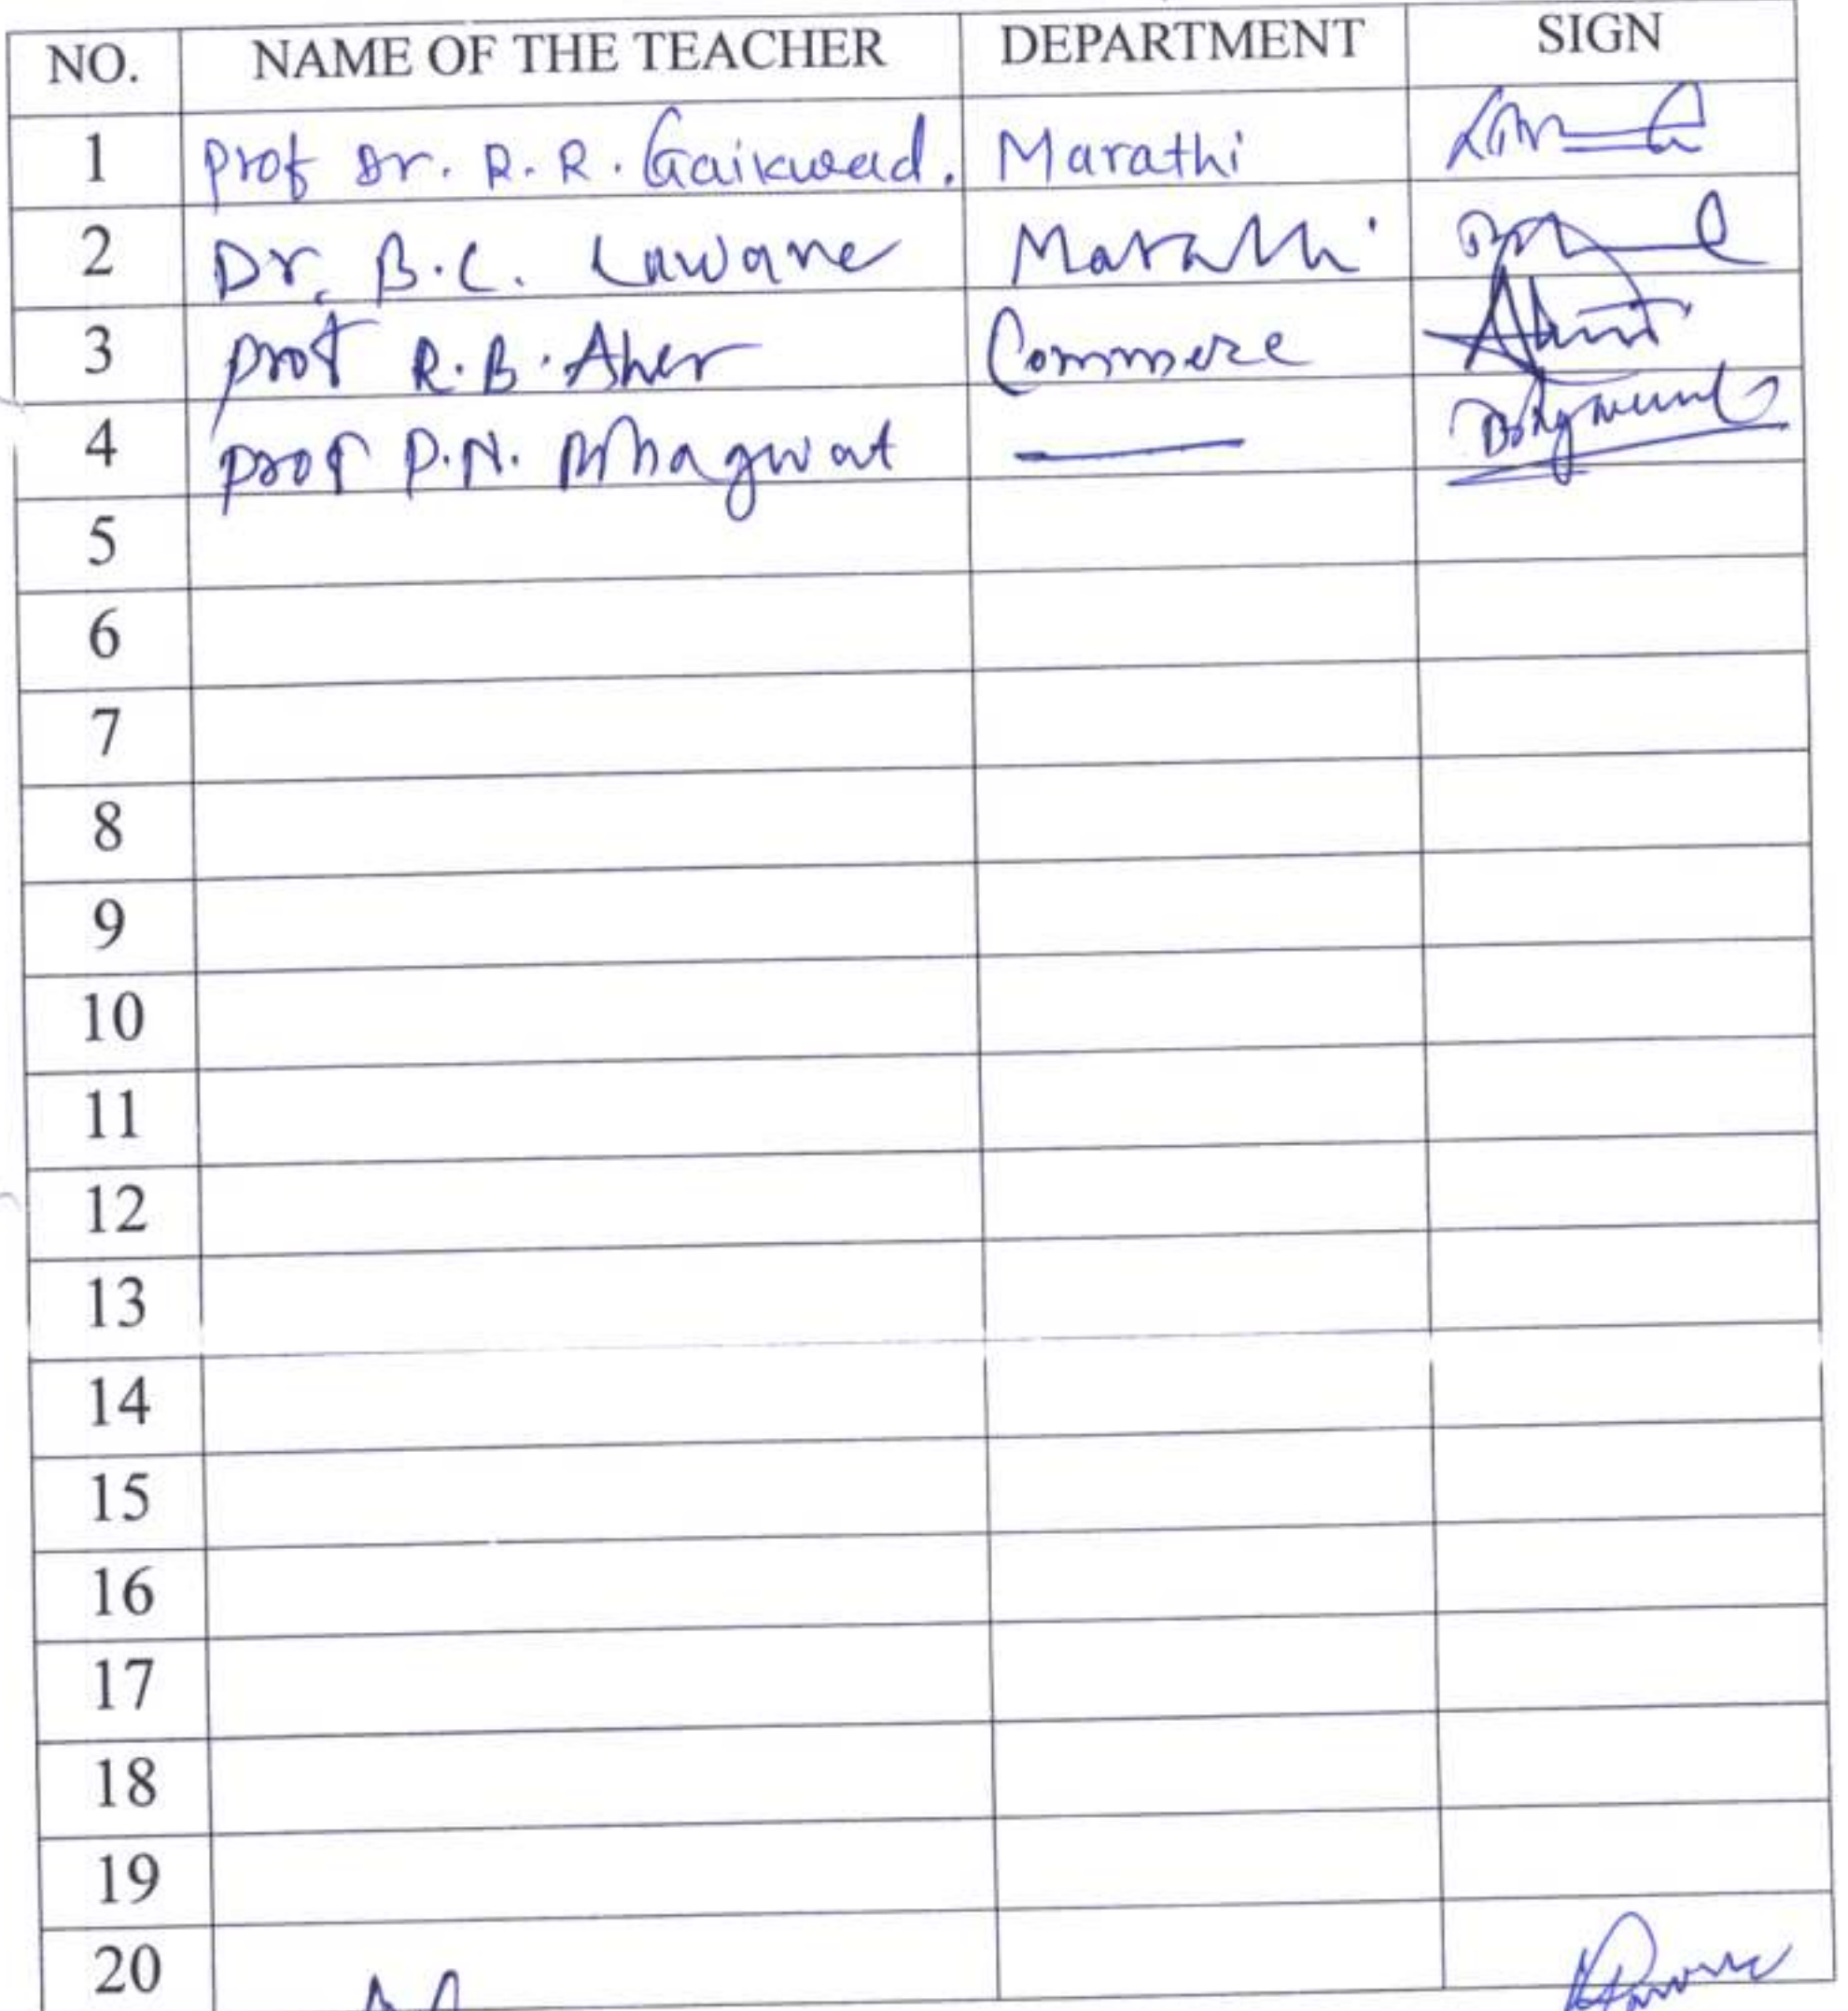 NO. NAME OF THE TEACHER DEPARTMENT SIGN
1 Prof Dr. R. R. Gaikwad. Marathi
2 Dr. B.C. Lawane Marathi
3 Prof R.B. Aher Commerce
4 Prof P.N. Bhagwat —
5
6
7
8
9
10
11
12
13
14
15
16
17
18
19
20